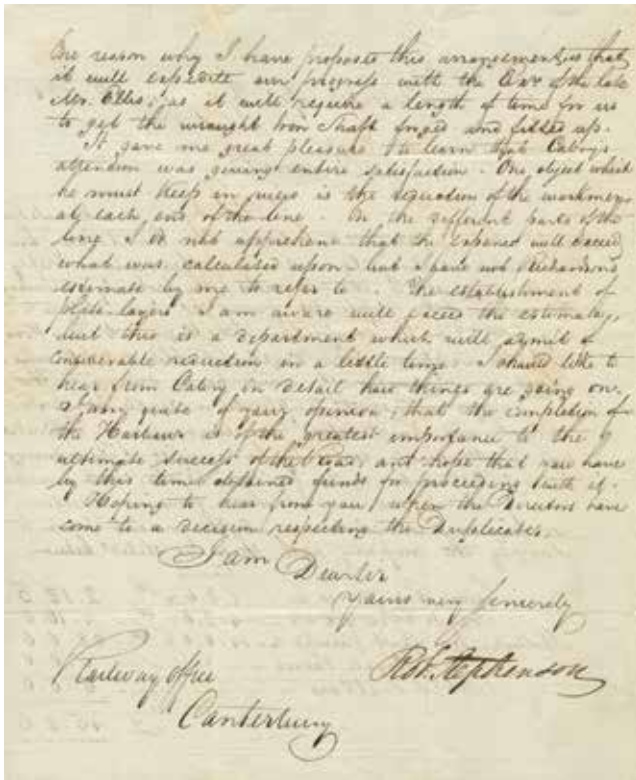 One reason why I have proposed this arrangement is that
it will expedite our progress with the Over of the late
Mr. Ellis; as it will require a length of time for us
to get the wrought Iron Shaft forged and fitted up.
It gave me great pleasure to learn that Cabry's
attention was giving entire satisfaction. One object which
he must keep in view is the reduction of the workmen
at each end of the line. On the different parts of the
line I do not apprehend that the expence will exceed
what was calculated upon but I have not Richardson's
estimate by me to refer to. The establishment of
plate-layers I am aware will exceed the estimate,
but this is a department which will admit of
considerable reduction in a little time. I should like to
hear from Cabry in detail how things are going on.
I am quite of your opinion, that the completion of
the Harbour is of the greatest importance to the
ultimate success of the Road, and hope that you have
by this time obtained funds for proceeding with it.
Hoping to hear from you when the Directors have
come to a decision respecting the Duplicates.
I am Dear Sir
Yours very sincerely
Robt. Stephenson
Railway office
Canterbury